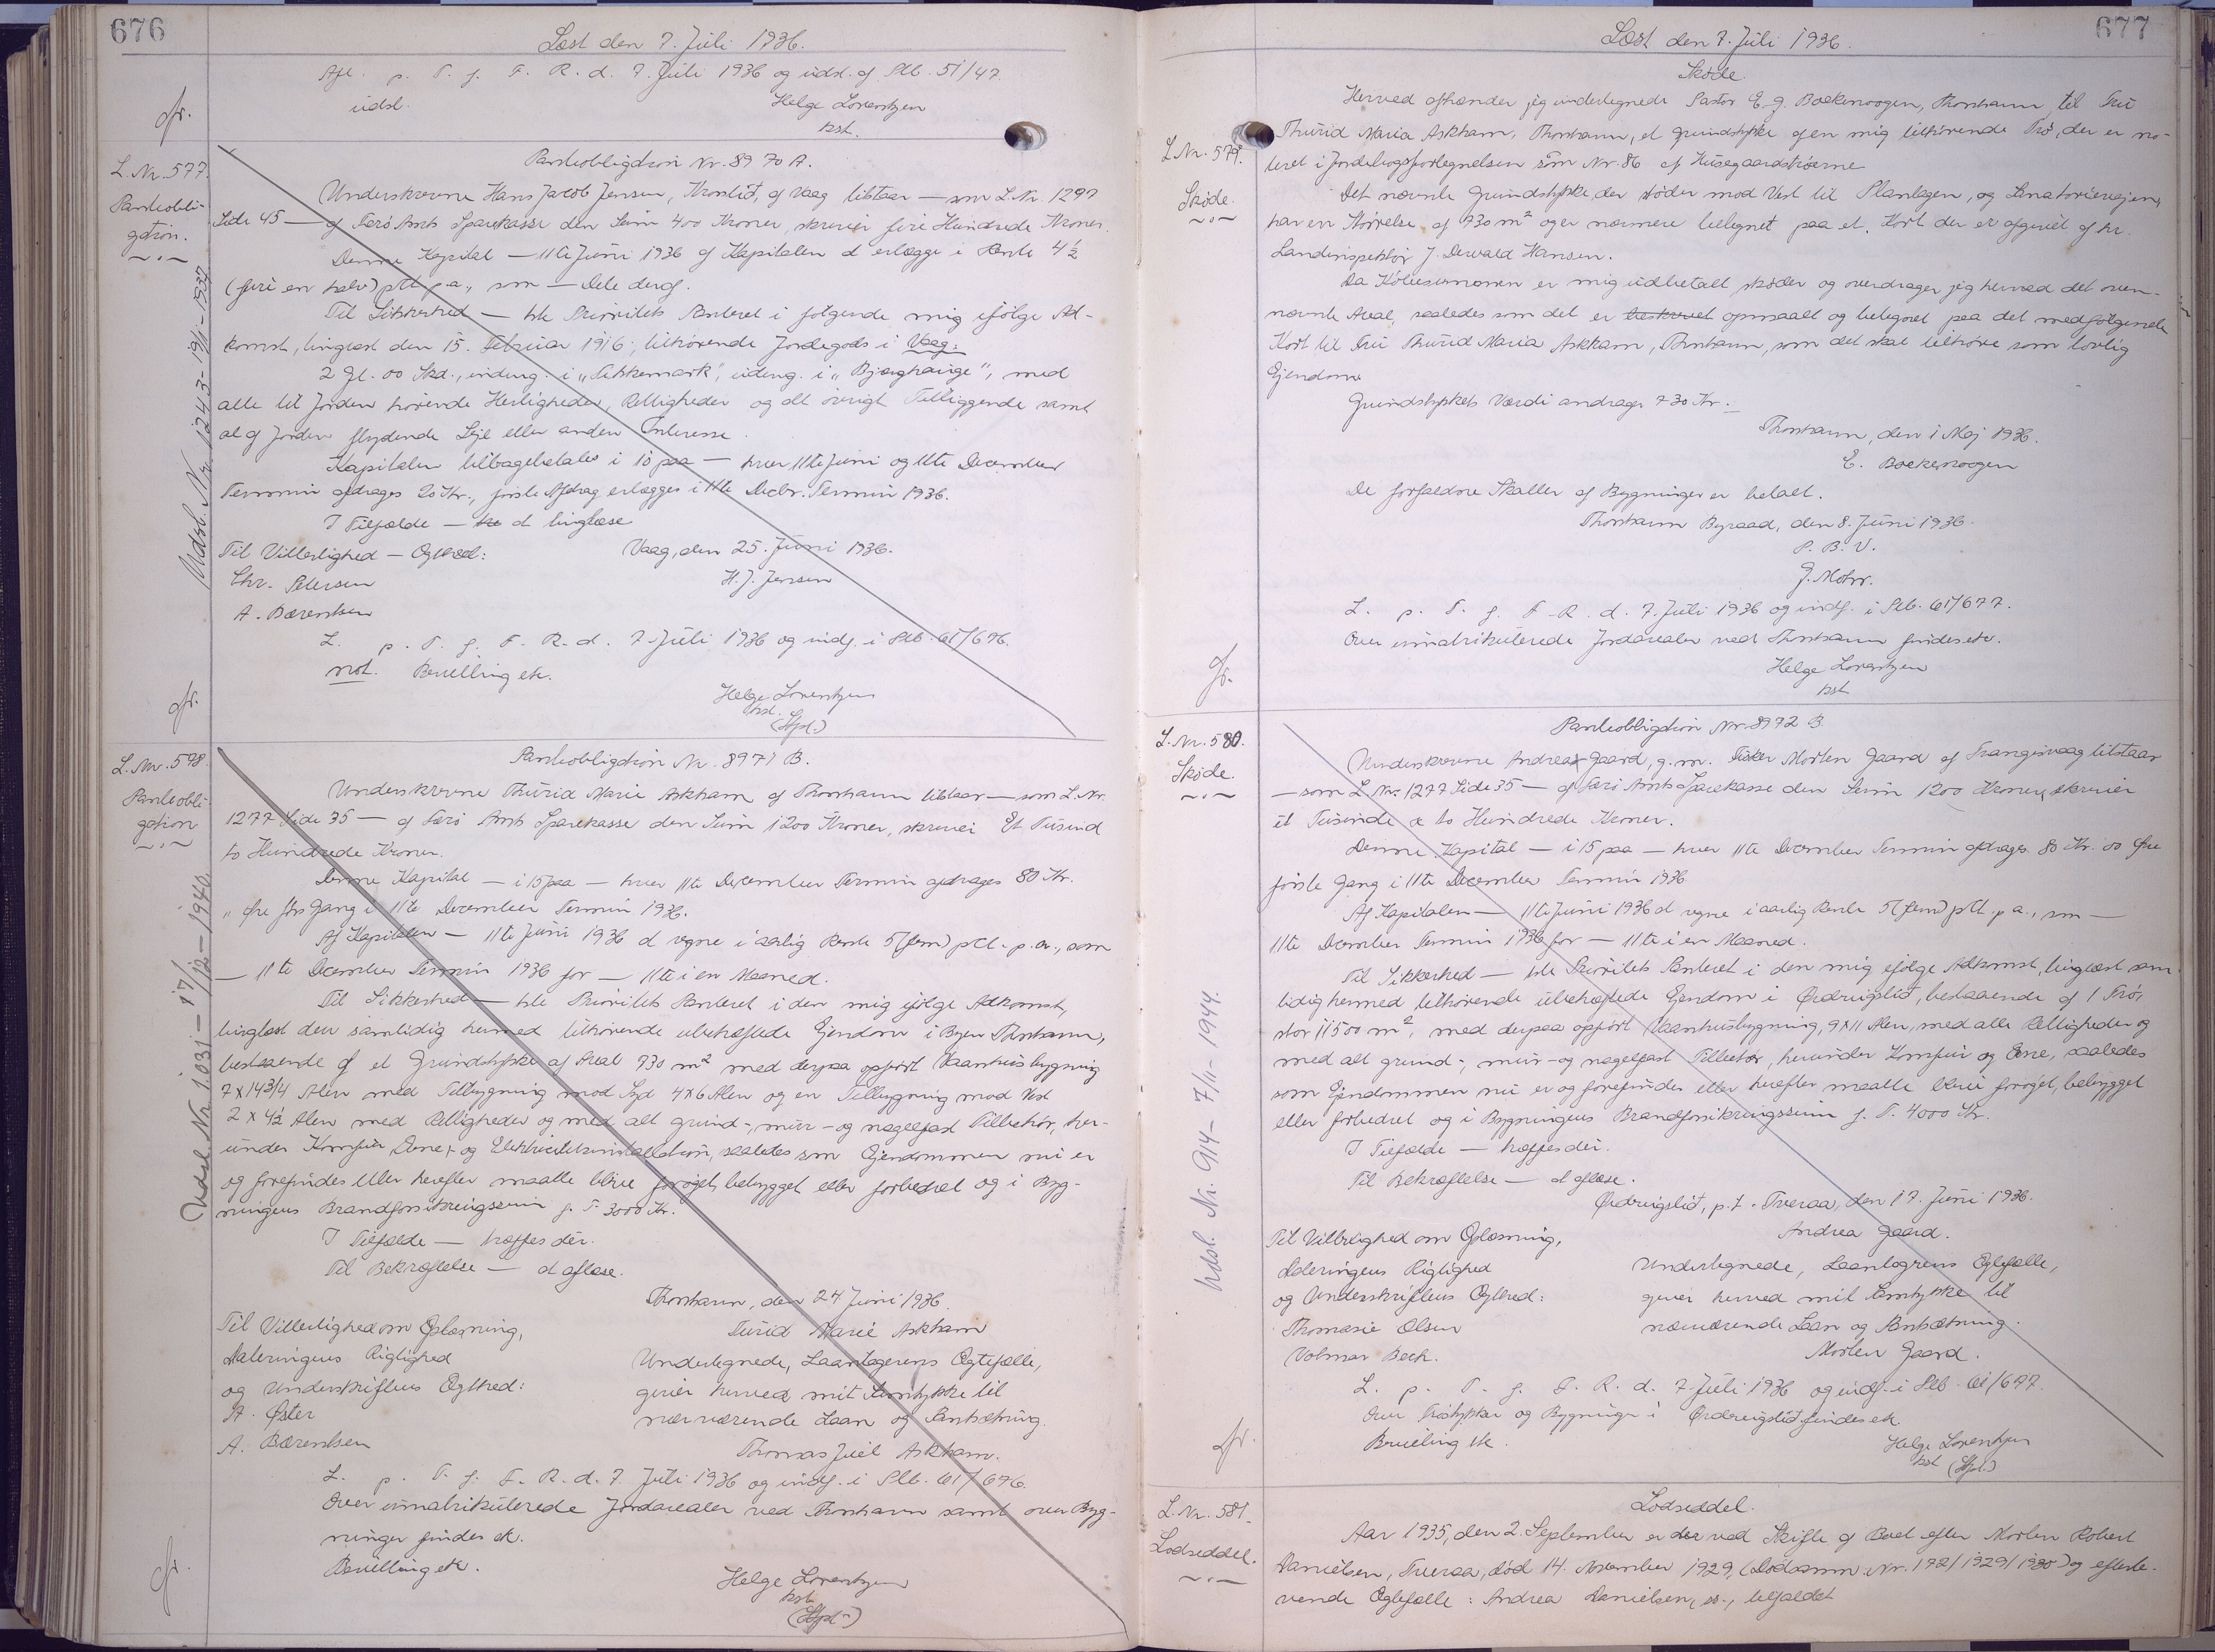 676
Læst den 7. Juli 1936.
Afl. p. T. f. F. R. d. 7. Juli 1936 og udsl. af Plb. 51/47.
udsl.
Helge Lorentzen
kst.
L. Nr. 577.
Panteobli-
gation.
Udsl. Nr. 1243 - 19/11 - 1937
Panteobligation Nr. 8970 A.
Underskrevne Hans Jacob Jensen, Kroslid, af Vaag tilstaar — som L. Nr. 1297
Side 45 — af Færø Amts Sparekasse den Sum 400 Kroner, skriver fire Hundrede Kroner.
Denne Kapital — 11te Juni 1936 af Kapitalen at erlægge i Rente 4½
(fire en halv) pCt. p.a., som — Dele deraf.
Til Sikkerhed — 1ste Prioritets Panteret i følgende mig ifølge Ad-
komst, tinglæst den 15. Februar 1916, tilhørende Jordegods i Vaag:
2 Gl. 00 Skd., indmg. i "Tekkemark", udmg. i "Bjærghauge", med
alle til Jorden hørende Herligheder, Rettigheder og alt øvrigt Tilliggende samt
al af Jorden flydende Leje eller anden Interesse.
Kapitalen tilbagebetales i 10 paa — hver 11te Juni og 11te December
Termin afdrages 20 Kr., første Afdrag erlægges i 11te Decbr. Termin 1936.
I Tilfælde — at tinglæse
Til Vitterlighed — Ogthed:
Vaag, den 25. Juni 1936.
Chr. Petersen
H. J. Jensen
A. Bærentsen
L. p. T. f. F. R. d. 7. Juli 1936 og indf. i Plb. 61/676.
not. Bevilling etc.
Helge Lorentzen
kst.
(Hpl.)
L. Nr. 578.
Panteobli-
gation
Udsl. Nr. 1.031 - 17/12 - 1940.
Panteobligation Nr. 8971 B.
Underskrevne Thurid Marie Askham af Thorshavn tilstaar — som L. Nr.
1277 Side 35 — af Færø Amts Sparekasse den Sum 1200 Kroner, skriver Et Tusind
to Hundrede Kroner.
Denne Kapital — i 15 paa — hver 11te December Termin afdrages 80 Kr.
" Øre førs Gang i 11te December Termin 1936.
Af Kapitalen — 11te Juni 1936 at regne i aarlig Rente 5 (fem) pCt. p.a., som
— 11te December Termin 1936 for — 11te i en Maaned.
Til Sikkerhed — 1ste Prioritets Panteret i den mig ifølge Adkomst,
tinglæst den samtidig hermed tilhørende ubehæftede Ejendom i Byen Thorshavn,
bestaaende af et Grundstykke af Areal 730 m² med derpaa opført Vaanhusbygning
7 x 14 3/4 Alen med Tilbygning mod Syd 4x6 Alen og en Tilbygning mod Vest
2 x 4½ Alen med Rettigheder og med alt grund-, mur- og nagelfast Tilbehør, her-
under Komfur, Ovne, og Elektricitetsinstallation, saaledes som Ejendommen nu er
og forefindes eller herefter maatte blive forøget, bebygget eller forbedret og i Byg-
ningens Brandforsikringssum f. T. 3000 Kr.
I Tilfælde — træffes der.
Til Bekræftelse — at aflæse.
Thorshavn, den 24 Juni 1936.
Til Vitterlighed om Oplæsning,
Turid Marie Askham
Dateringens Rigtighed
Undertegnede, Laantagerens Ægtefælle,
og Underskriftens Ægthed:
giver herved mit Samtykke til
A. Øster
nærværende Laan og Pantsætning.
A. Bærentsen
Thomas Juel Askham.
L. p. T. f. F. R. d. 7. Juli 1936 og indf. i Plb. 61/676.
Over umatrikulerede Jordarealer ved Thorshavn samt over Byg-
ninger findes etc.
Bevilling etc.
Helge Lorentzen
kst.
(Hpl.)
677
Læst den 7. Juli 1936.
L. Nr. 579.
Skøde.
Skøde.
Herved afhænder jeg undertegnede Pastor E. G. Boekenoogen, Thorshavn til Fru
Thurid Maria Askham, Thorshavn, et Grundstykke af en mig tilhørende Trø, der er no-
teret i Jordebogsfortegnelsen som Nr. 86 af Husegaardstrøerne
Det nævnte Grundstykke, der støder mod Vest til Plantagen, og Sanatorievejen,
har en Størrelse af 730 m² og er nærmere betegnet paa et Kort der er afgivet af hr.
Landinspektør J. Dewald Hansen.
Da Købesummen er mig udbetalt skøder og overdrager jeg herved det oven-
nævnte Areal, saaledes som det er beskrevet opmaalt og betegnet paa det medfølgende
Kort til Fru Thurid Maria Askham, Thorshavn, som det skal tilhøre som lovlig
Ejendom.
Grundstykkets Værdi andrager 730 Kr.
Thorshavn, den 1 Maj 1936.
E. Boekenoogen
De forfaldne Skatter af Bygninger er betalt.
Thorshavn Byraad, den 8. Juni 1936.
P. B. V.
J. Mohr.
L. p. T. f. F. R. d. 7. Juli 1936 og indf. i Plb. 61/677.
Over umatrikulerede Jordarealer ved Thorshavn findes etc.
Helge Lorentzen
kst.
L. Nr. 580.
Skøde.
Udsl. Nr. 914 - 7/11 - 1944.
Panteobligation Nr. 8972 B.
Underskrevne Andrea Gaard, g. m. Fisker Morten Gaard af Trangisvaag tilstaar
— som L. Nr. 1277 Side 35 — af Færø Amts Sparekasse den Sum 1200 Kroner, skriver
et Tusinde to Hundrede Kroner.
Denne Kapital — i 15 paa — hver 11te December Termin afdrages 80 Kr. 00 Øre
første Gang i 11te December Termin 1936.
Af Kapitalen — 11te Juni 1936 at regne i aarlig Rente 5 (fem) pCt. p.a., som —
11te December Termin 1936 for — 11te i en Maaned.
Til Sikkerhed — 1ste Prioritets Panteret i den mig ifølge Adkomst, tinglæst sam-
tidig hermed tilhørende ubehæftede Ejendom i Ørdavigslid, bestaaende af 1 Trø,
stor 11500 m², med derpaa opført Vaanhusbygning, 9x11 Alen, med alle Rettigheder og
med alt grund-, mur- og nagelfast Tilbehør, herunder Komfur og Ovne, saaledes
som Ejendommen nu er og forefindes eller herefter maatte blive forøget, bebygget
eller forbedret og i Bygningens Brandforsikringssum f. T. 4000 Kr.
I Tilfælde — træffes der.
Til Bekræftelse — at aflæse.
Ørdavigslid, p.t. Tveraa, den 17. Juni 1936.
Til Vitterlighed om Oplæsning,
Andrea Gaard.
Dateringens Rigtighed
Undertegnede, Laantagerens Ægtefælle,
og Underskriftens Ægthed:
giver herved mit Samtykke til
Thomasie Olsen
nærværende Laan og Pantsætning.
Volmar Bech.
Morten Gaard.
L. p. T. f. F. R. d. 7 Juli 1936 og indf. i Plb. 61/677.
Over Trøstykker og Bygninger i Ørdavigslid findes etc.
Bevilling etc.
Helge Lorentzen
kst. (Hpl.)
L. Nr. 581.
Lodseddel.
Lodseddel.
Aar 1935, den 2. September er der ved Skifte af Boet efter Morten Robert
Danielsen, Tveraa, død 14. November 1929, (Dødsanm. Nr. 172/1929/1930) og efterle-
vende Ægtefælle: Andrea Danielsen, ss., tilfaldet